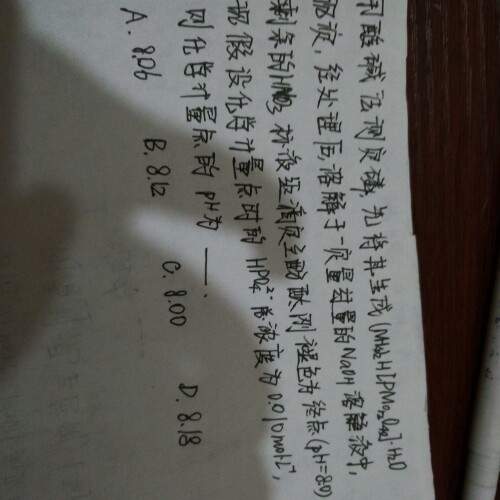 用酸碱法测定磷,先将其生成(NH4)2H[PMo12O40]·H2O
沉淀,经处理后,溶解于一定量过量的NaOH溶解液中,
剩余的HNO3标液返滴定至酚酞刚褪色为终点(pH=8.0)
现假设化学计量点时的HPO4²⁻溶浓度为0.010mol·L⁻¹,
则化学计量点的pH为___.
A. 8.06 B. 8.12 C. 8.00 D. 8.18